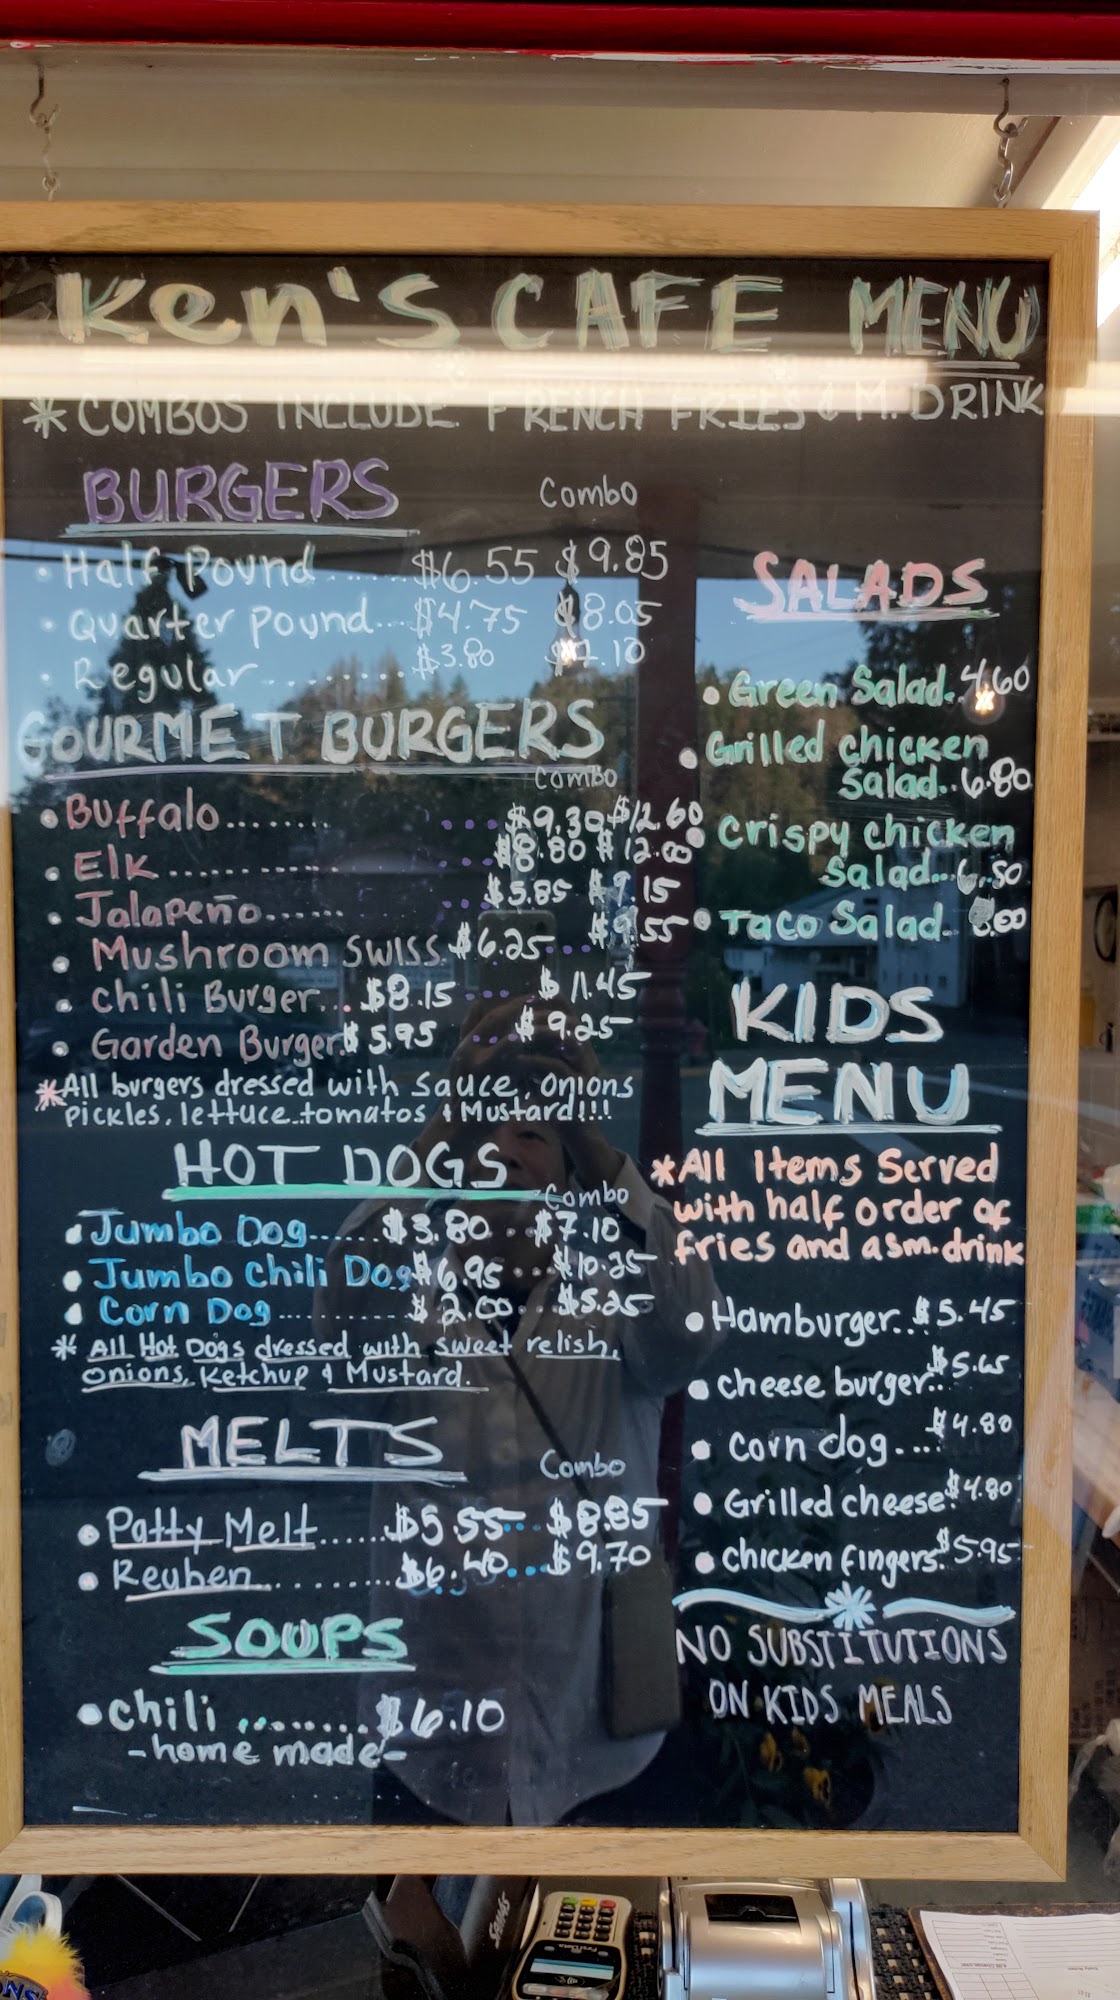 Ken's CAFE MENU
* COMBOS INCLUDE FRENCH FRIES & M. DRINK
BURGERS Combo
• Half Pound ...... $6.55 $9.85
• Quarter pound... $4.75 $8.05
• Regular ......... $3.80 $7.10
GOURMET BURGERS
Combo
• Buffalo........ ... $9.30 $12.60
• Elk ........... ... $8.80 $12.00
• Jalapeño...... ... $5.85 $9.15
• Mushroom SWISS. $6.25 ... $9.55
• Chili Burger... $8.15 ... $11.45
• Garden Burger. $5.95 ... $9.25
*All burgers dressed with sauce, onions
pickles, lettuce..tomatos & Mustard!!!
HOT DOGS
Combo
• Jumbo Dog...... $3.80 .. $7.10
• Jumbo Chili Dog $6.95 ... $10.25
• Corn Dog............ $2.00... $5.25
* All Hot Dogs dressed with sweet relish,
Onions, Ketchup & Mustard.
MELTS
Combo
• Patty Melt...... $5.55... $8.85
• Reuben............ $6.40... $9.70
SOUPS
• Chili .......... $6.10
-home made-
SALADS
• Green Salad. 4.60
• Grilled chicken
Salad.. 6.80
• Crispy chicken
Salad...
• Taco Salad..
KIDS
MENU
*All Items Served
with half order of
fries and a sm. drink
• Hamburger... $5.45
• cheese burger.. $5.65
• corn dog.... $4.80
• Grilled cheese. $4.80
• chicken fingers. $5.95
NO SUBSTITUTIONS
ON KIDS MEALS